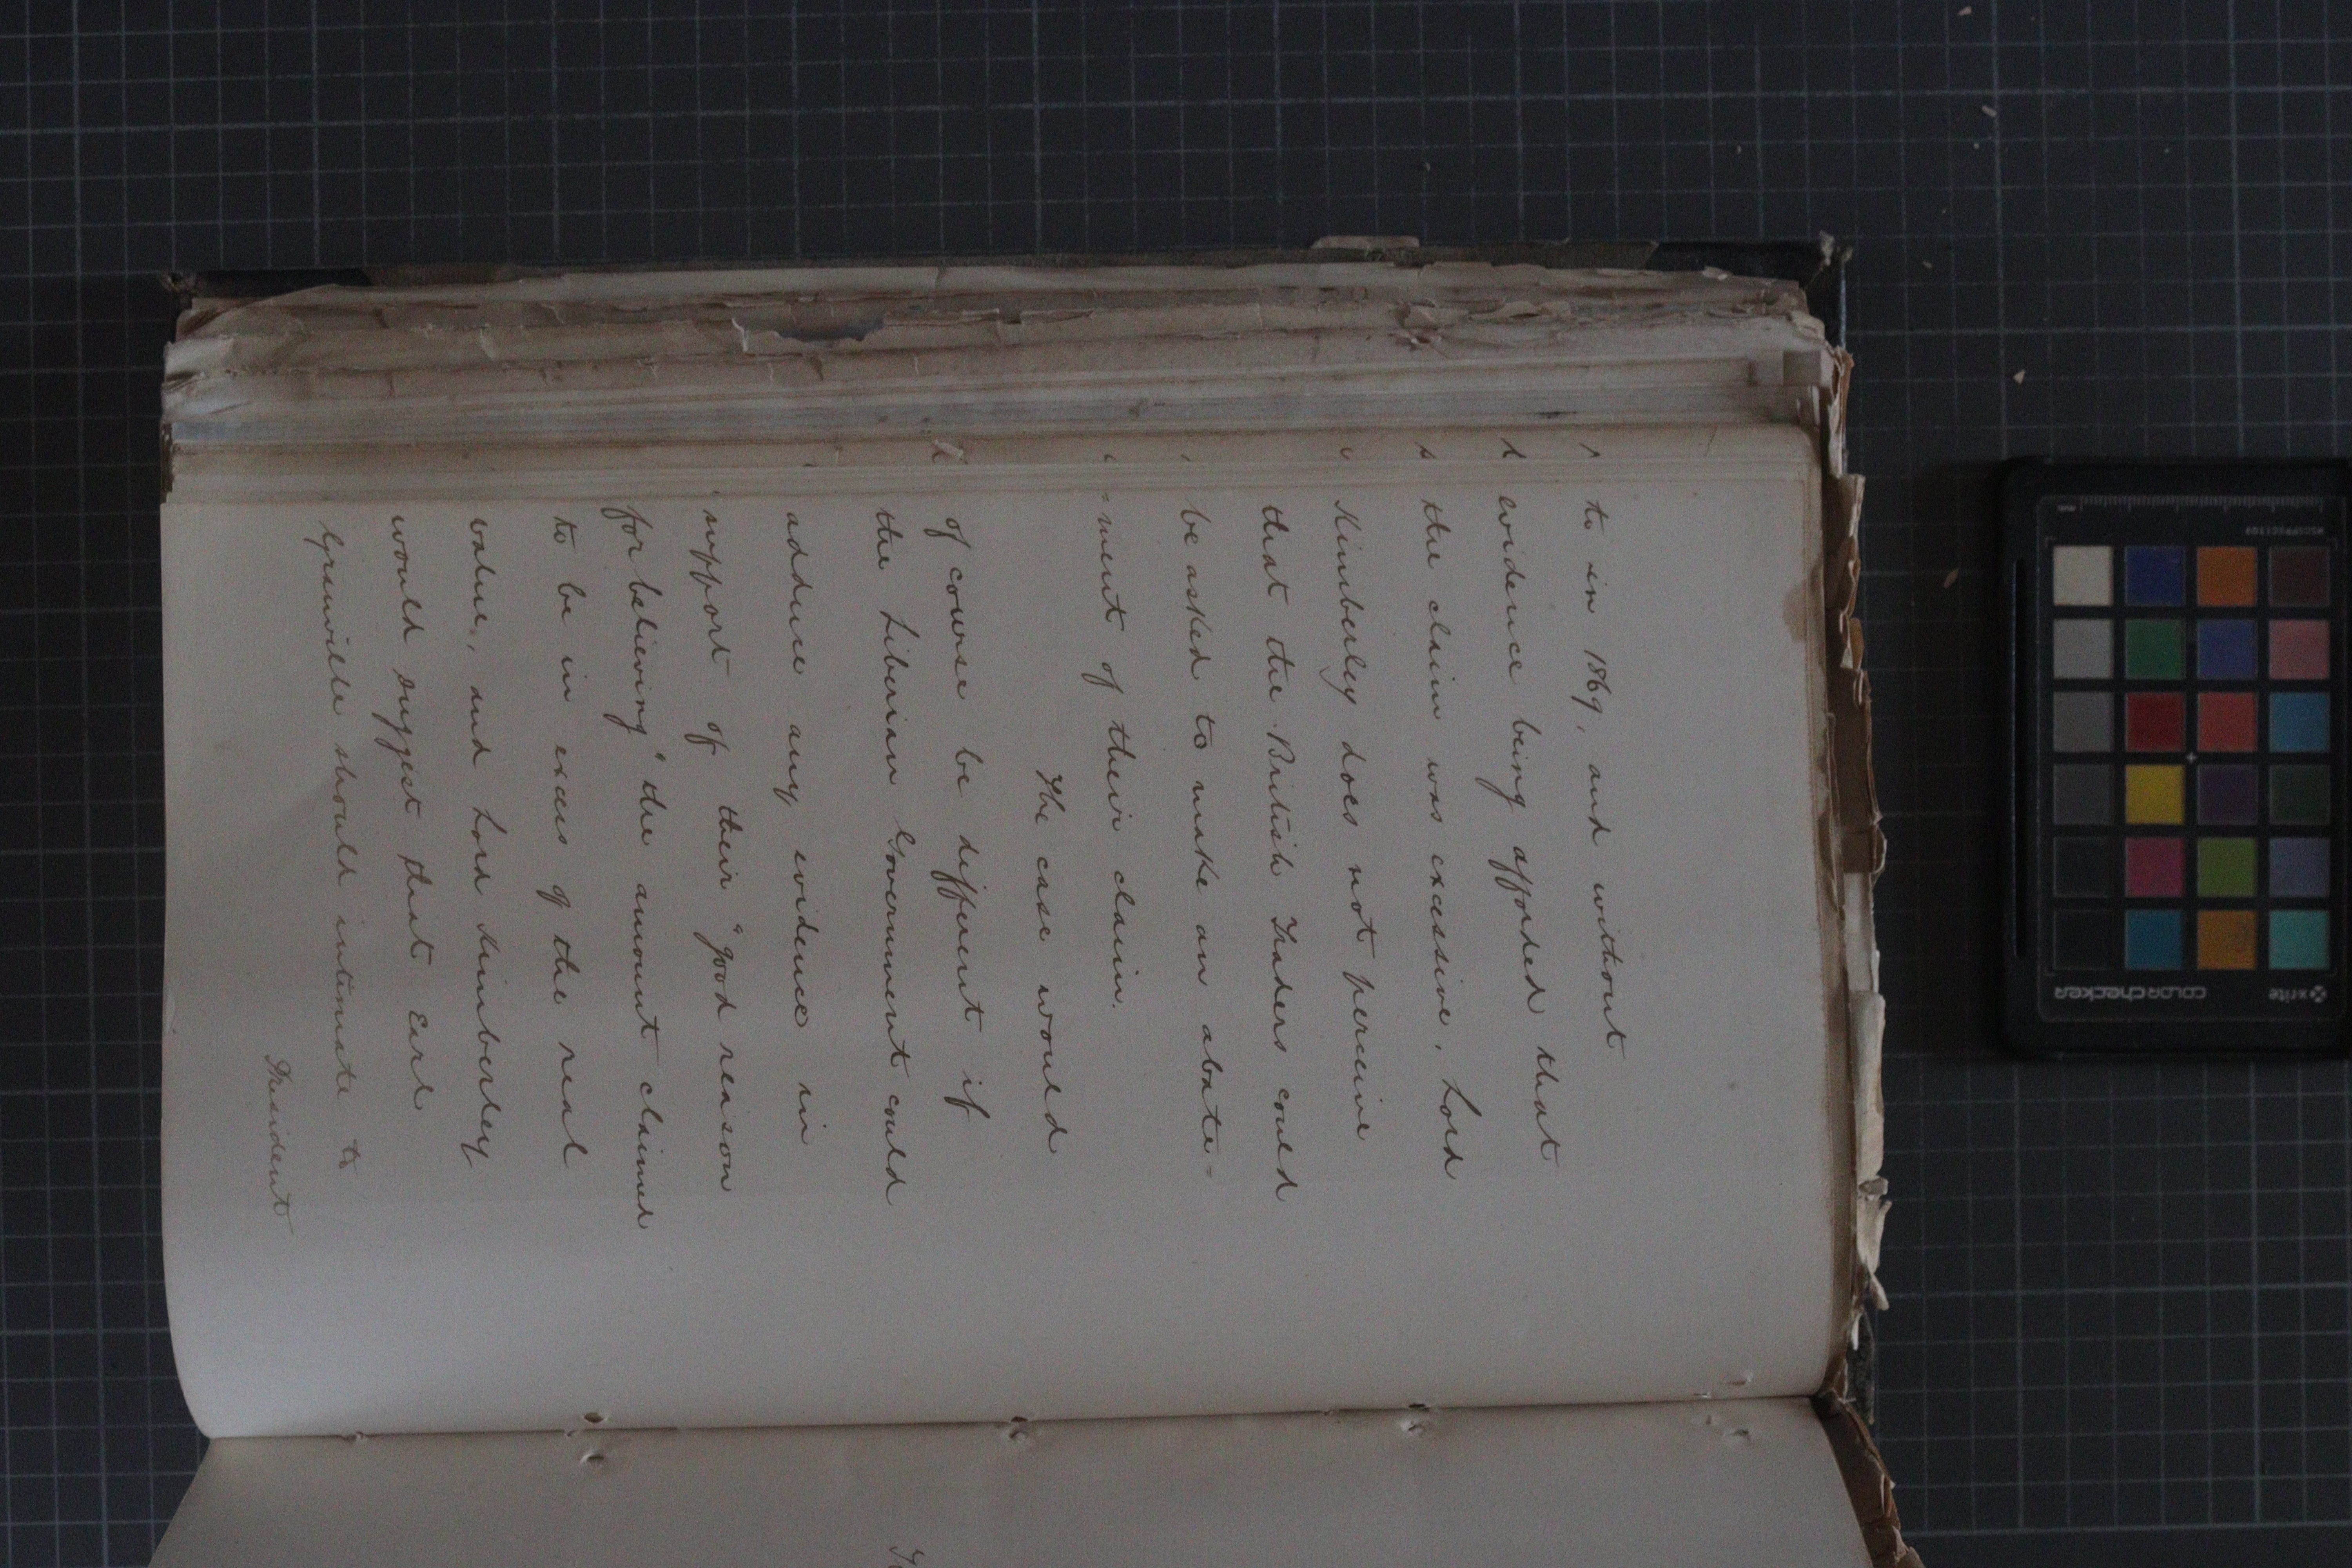 to in 1869, and without
evidence being afforded that
the claim was excessive, Lord
Kimberley does not perceive
that the British Traders could
be asked to make an abate=
=ment of their claim.
The case would
of course be different if
the Liberian Government could
adduce any evidence in
support of their "good reason
for believing" the amount claimed
to be in excess of the real
value, and Lord Kimberley
would suggest that Earl
Granville should intimate to
President
x-rite
colorchecker